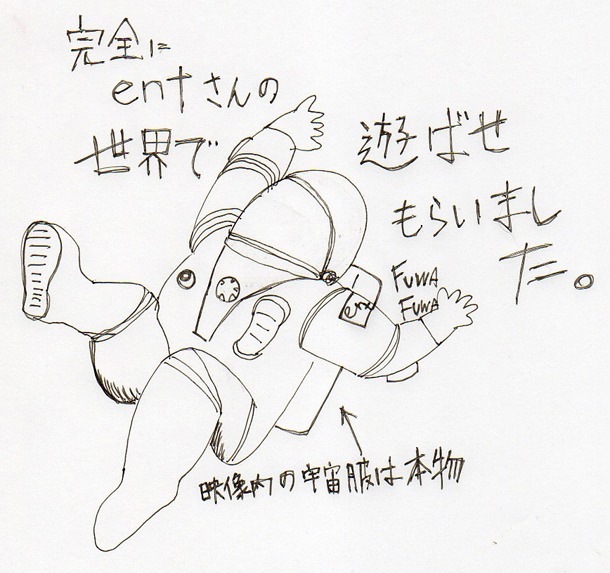 完全に
entさんの
世界で
遊ばせ
もらいまし
た。
FUWA
FUWA
ent
映像内の宇宙服は本物